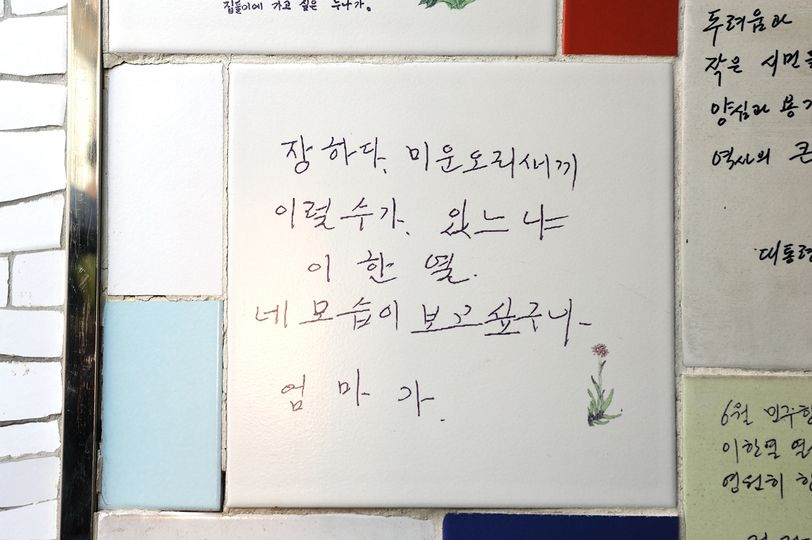 집들이에 가고 싶은 누나가.
장하다. 미운오리새끼
이럴 수가. 있느냐
이 한 열.
네 모습이 보고싶구나.
엄 마 가.
두려움과
작은 시민
양심과 용기
역사의 큰
대통령
6월 민주항
이한열 열사
영원히